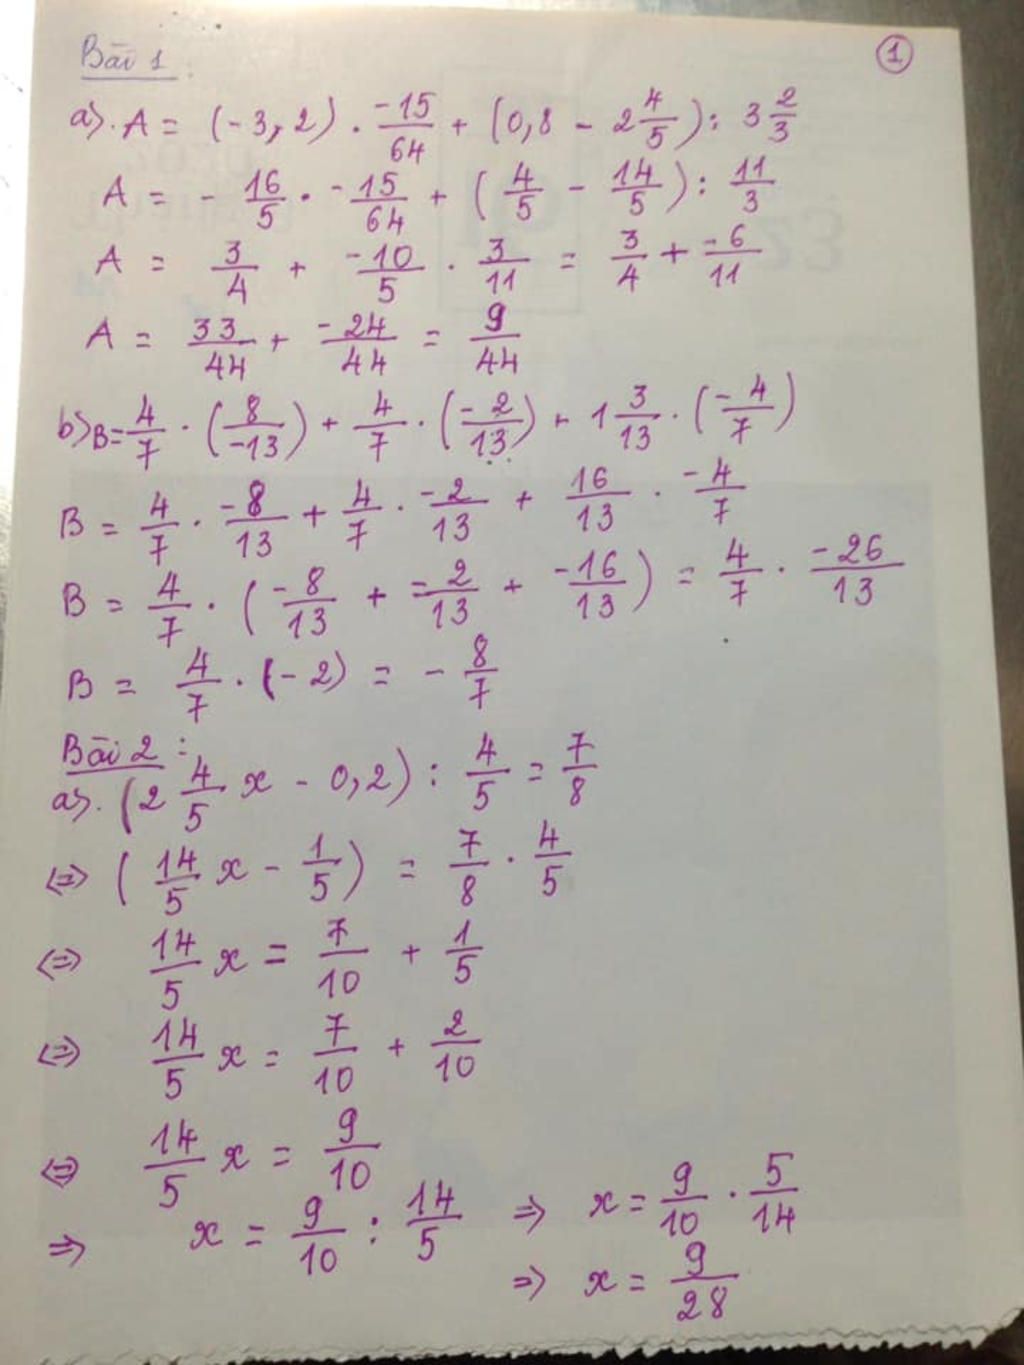 1
Bài 1
a). A = (-3,2) . -15/64 + (0,8 - 2 4/5) : 3 2/3
A = - 16/5 . -15/64 + (4/5 - 14/5) : 11/3
A = 3/4 + -10/5 . 3/11 = 3/4 + -6/11
A = 33/44 + -24/44 = 9/44
b) B = 4/7 . (8/-13) + 4/7 . (-2/13) + 1 3/13 . (-4/7)
B = 4/7 . -8/13 + 4/7 . -2/13 + 16/13 . -4/7
B = 4/7 . (-8/13 + -2/13 + -16/13) = 4/7 . -26/13
B = 4/7 . (-2) = - 8/7
Bài 2 :
a). (2 4/5 x - 0,2) : 4/5 = 7/8
⇔ (14/5 x - 1/5) = 7/8 . 4/5
⇔ 14/5 x = 7/10 + 1/5
⇔ 14/5 x = 7/10 + 2/10
⇔ 14/5 x = 9/10
⇒ x = 9/10 : 14/5 ⇒ x = 9/10 . 5/14
⇒ x = 9/28